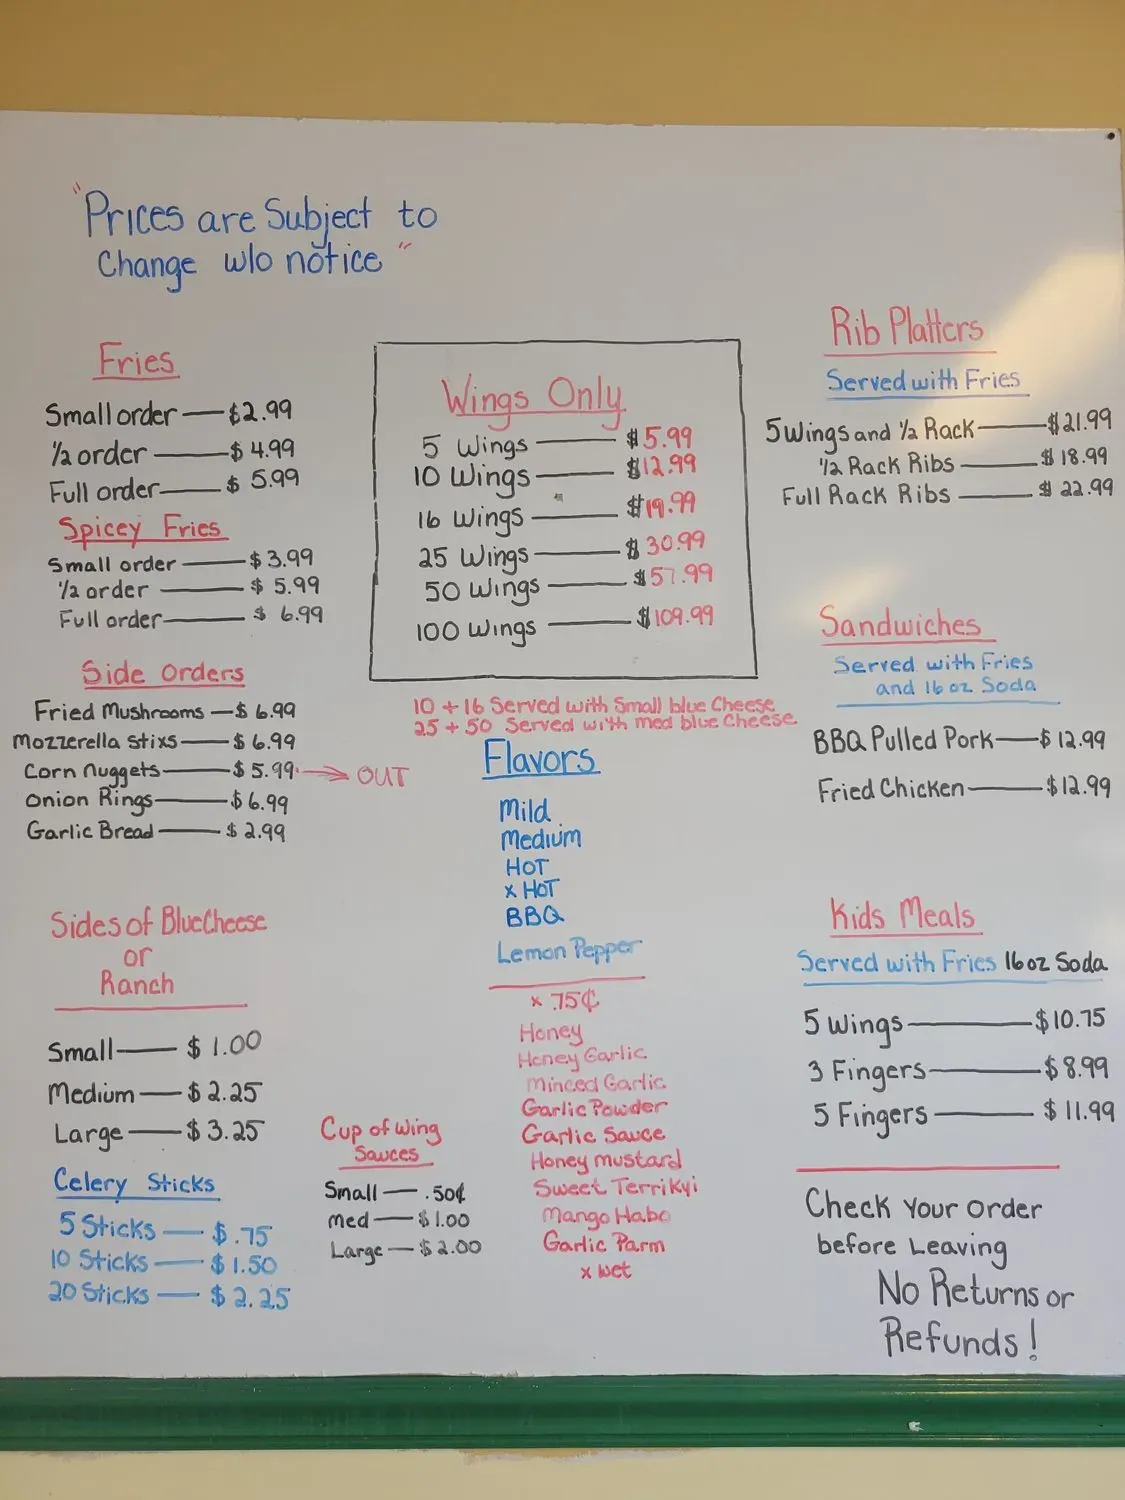 "Prices are Subject to
Change w/o notice"
Fries
Small order — $2.99
1/2 order — $4.99
Full order — $5.99
Spicey Fries
Small order — $3.99
1/2 order — $5.99
Full order — $6.99
Side Orders
Fried Mushrooms — $6.99
Mozzerella Stixs — $6.99
Corn Nuggets — $5.99 → OUT
Onion Rings — $6.99
Garlic Bread — $2.99
Sides of Blue Cheese
or
Ranch
Small — $1.00
Medium — $2.25
Large — $3.25
Celery Sticks
5 Sticks — $.75
10 Sticks — $1.50
20 Sticks — $2.25
Wings Only
5 Wings — $5.99
10 Wings — $12.99
16 Wings — $19.99
25 Wings — $30.99
50 Wings — $57.99
100 Wings — $109.99
10 + 16 Served with Small blue Cheese
25 + 50 Served with med blue Cheese
Flavors
Mild
Medium
HOT
x HOT
BBQ
Lemon Pepper
x .75¢
Honey
Honey Garlic
Minced Garlic
Garlic Powder
Garlic Sauce
Honey mustard
Sweet Terrikyi
Mango Habo
Garlic Parm
x wet
Cup of Wing
Sauces
Small — .50¢
med — $1.00
Large — $2.00
Rib Platters
Served with Fries
5 Wings and 1/2 Rack — $21.99
1/2 Rack Ribs — $18.99
Full Rack Ribs — $22.99
Sandwiches
Served with Fries
and 16 oz Soda
BBQ Pulled Pork — $12.99
Fried Chicken — $12.99
Kids Meals
Served with Fries 16 oz Soda
5 Wings — $10.75
3 Fingers — $8.99
5 Fingers — $11.99
Check Your Order
before Leaving
No Returns or
Refunds!